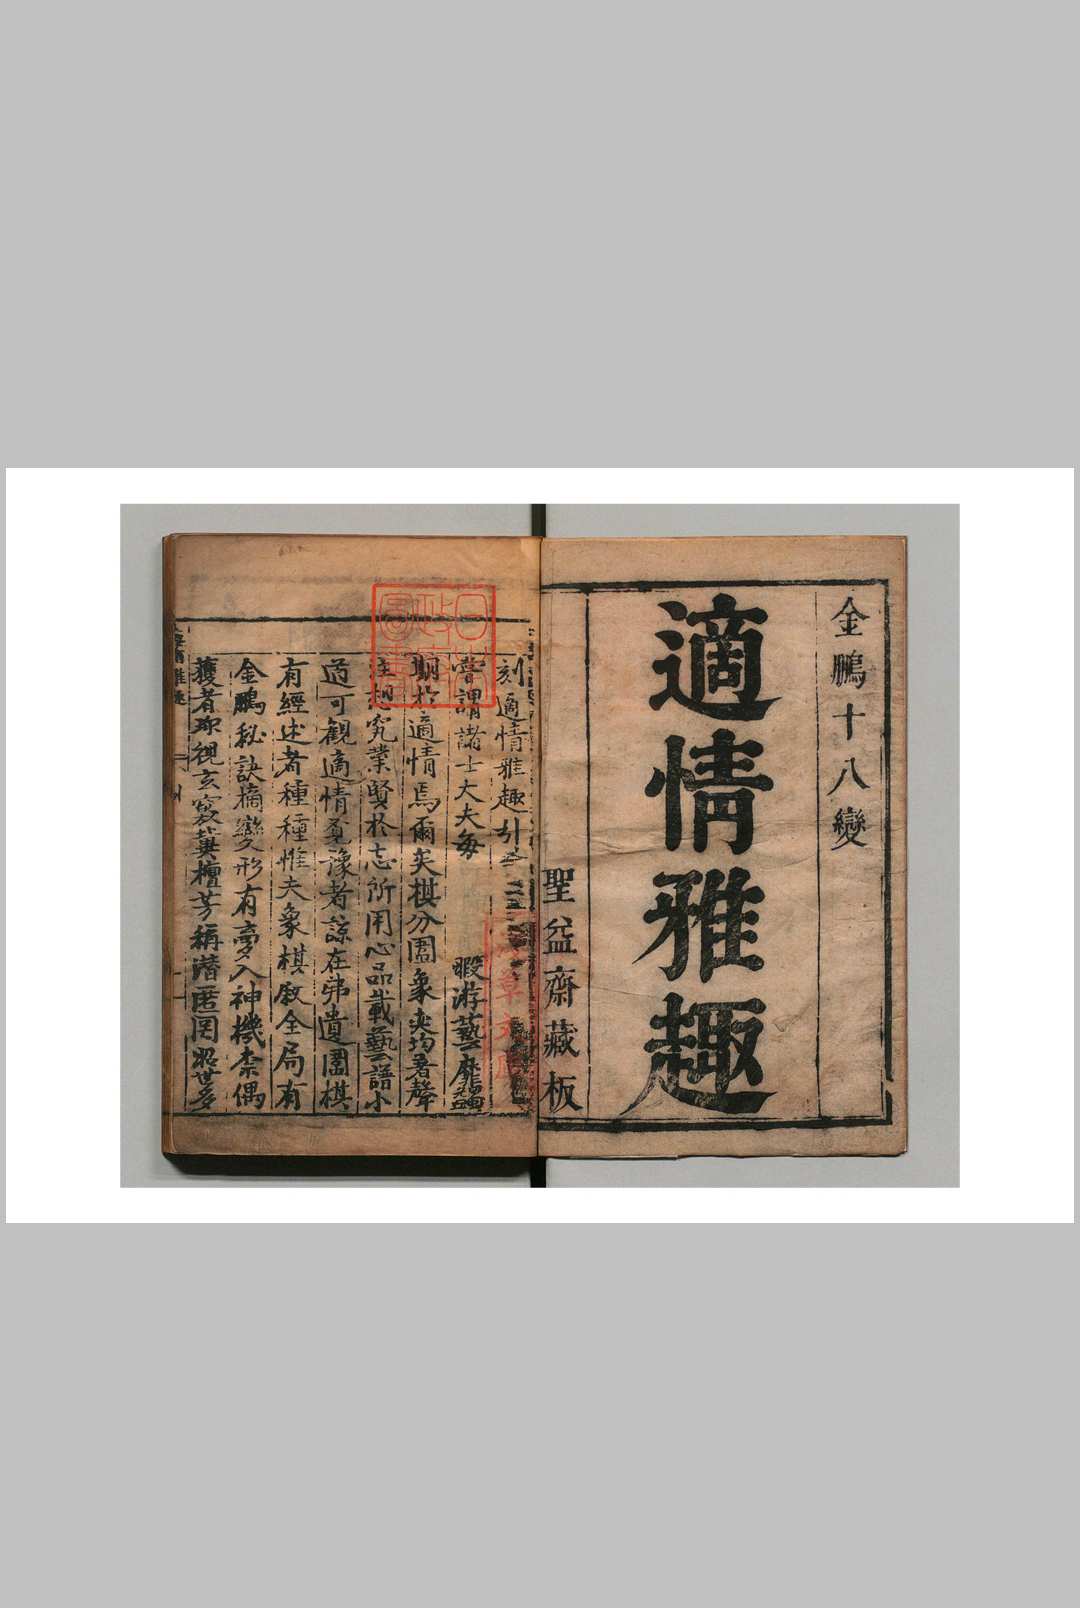 金鵬十八變
適情雅趣
聖益齋藏板
刻適情雅趣引
嘗謂諸士大夫每 暇游藝靡
期於適情焉爾矣棋分圍象奕均著聲
究業賢於志所用心品載藝語小
道可觀適情夷豫者諒在弗遺圍棋
有經述者種種惟夫象棋啟全局有
金鵬秘訣摘變形有夢入神機柰偶
獲者珎視玄宻冀檀芳稱潛匿罔昭世多